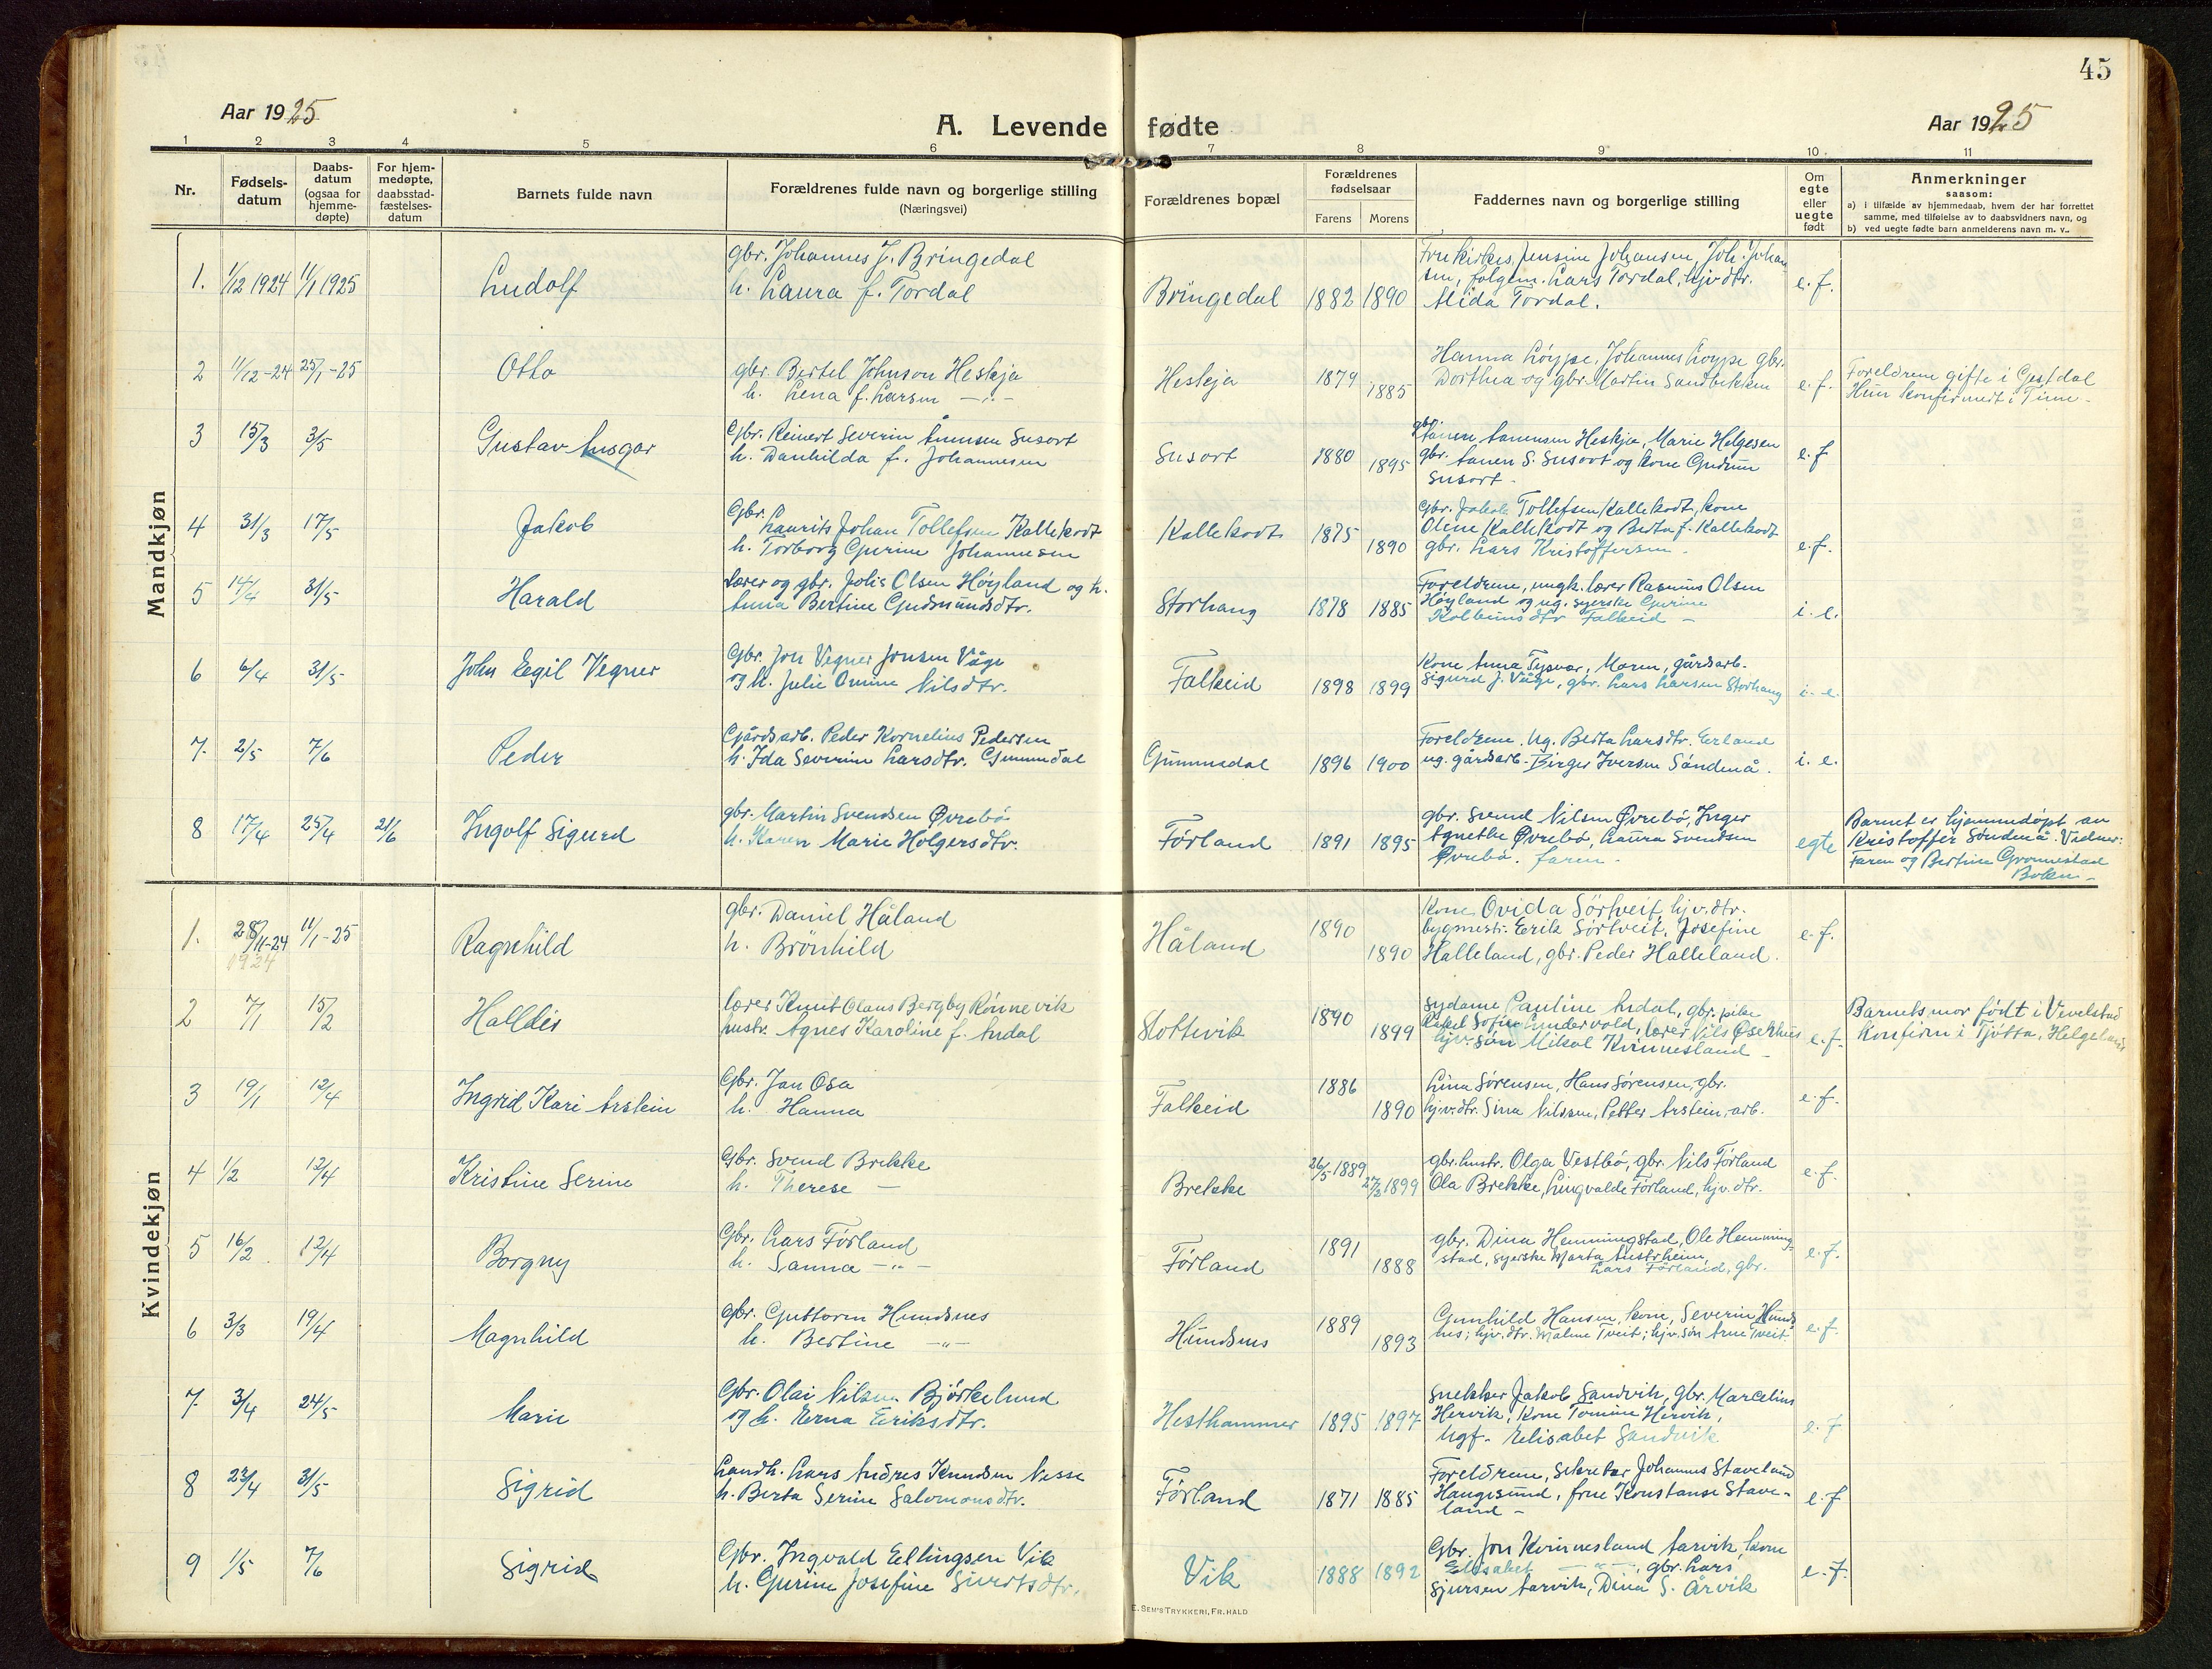 45
Aar 1925
A. Levende fødte
Aar 1925
1 2 3 4 5 6 7 8 9 10 11
Nr.
Fødsels-
datum
Daabs-
datum
(ogsaa for
hjemme-
døpte)
For hjem-
medøpte,
daabsstad-
fæstelses-
datum
Barnets fulde navn
Forældrenes fulde navn og borgerlige stilling
(Næringsvei)
Forældrenes bopæl
Forældrenes
fødselsaar
Farens Morens
Faddernes navn og borgerlige stilling
Om
egte
eller
uegte
født
Anmerkninger
saasom:
a) i tilfælde av hjemmedaab, hvem der har forrettet
samme, med tilføielse av to daabsvidners navn, og
b) ved uegte fødte barn anmelderens navn m. v..
Mandkjøn
1. 1/12 1924 11/1 1925 Ludolf
gbr. Johannes J. Bringedal
h. Laura f. Tordal
Bringedal 1882 1890
Jensine Johansen, Joh. Johan
sen, Lars Tordal, hjv. dtr.
Alida Tordal.
e. f.
2 11/12-24 25/1-25 Otto
gbr. Bertel Johnson Heskja
h. Lena f. Larsen -"-
Heskja 1879 1885
Hanna Løype, Johannes Løype gbr.
Dorthea og gbr. Martin Sandbekken
e. f.
Foreldrene gifte i Gestdal
Hun konfirmert i Time.
3 15/3 3/5 Gustav Ansgar
Gbr. Reinert Severin Anensen Susort
h. Danhilda f. Johannesen
Susort 1880 1895
gbr. Anensen Heskja, Marie Helgesen
gbr. Aanen S. Susort og kone Gudrun
Susort.
e. f
4 31/3 17/5 Jakob
Gbr.
Laurits Johan Tollefsen Kallekodt
h. Torborg Gurine Johannesen
Kallekodt 1875 1890
Gbr. Jakob Tollefsen Kallekodt, kone
Oline Kallekodt og Berta f. Kallekodt
gbr. Lars Kristoffersen.
e. f.
5 14/4 31/5 Harald
Lærer og gbr. Johs Olsen Høyland og h.
Anna Bertine Gudmundsdtr.
Storhaug 1878 1885
Foreldrene, ungk. lærer Rasmus Olsen
Høyland og ug. syerske Gurine
Kolbeinsdtr Falkeid -
i. e.
6 6/4 31/5 John Egil Vegner
Gbr. Jon Vegner Jonsen Våge
og h. Julie Omine Nilsdtr.
Falkeid 1898 1899
Kone Anna Tysvær, Moren, gårdsarb.
Sigurd J. Våge, gbr. Lars Larsen Storhaug
i. e.
7. 2/5 7/6 Peder
Gårdsarb. Peder Kornelius Pedersen
h. Ida Severine Larsdtr. Gunnusdal
Gunnusdal 1896 1900
Foreldrene. Ug. Berta Larsdtr. Erland
ug. gårdsarb. Birger Iversen Söndenå.
i. e.
8 17/4 25/4 21/6 Ingolf Sigurd
gbr. Martin Svendsen Øvrebø
h. Karen Marie Holgersdtr.
Førland 1891 1895
gbr. Svend Nilsen Øvrebø, Inger
Agnethe Øvrebø, Laura Svendsen
Øvrebø. faren.
egte
Barnet er hjemmedøpt av
Kristoffer Søndenå. Vidner:
Faren og Bertine Grønnestad
Bokn -
Kvindekjøn
1. 28/11-24 11/1-25 Ragnhild
1924
gbr. Daniel Håland
h. Brönhild
Håland 1890 1890
Kone Ovida Sörtveit, hjv. dtr.
bygmestr. Erik Sörtveit, Josefine
Halleland, gbr. Peder Halleland.
e. f.
2 7/1 15/2 Halldis
lærer Knut Olaus Bergby Rönnevik
hustr. Agnes Karoline f. Andal
Slottevik 1890 1899
Sydame Pauline Andal, gbr. pike
Rakel Sofie Lundervold, lærer Nils Øserhus
hjv. søn Mikal Kvinnesland -
e. f.
Barnets mor født i Vevelstad
Konfirm i Tjøtta, Helgeland
3 19/1 12/4 Ingrid Kari Arstein
Gbr. Jan Osa
h. Hanna
Falkeid 1886 1890
Lina Sørensen, Hans Sørensen, gbr.
hjv. dtr. Sina Nilssen, Petter Arstein, arb.
e. f.
4 1/2 12/4 Kristine Serine
Gbr. Svend Brekke
h. Therese -
Brekke 26/5 1889 27/2 1899
gbr. hustr. Olga Vestbø, gbr. Nils Førland
Ola Brekke, Lingvalde Førland, hjv. dtr.
e. f.
5 16/2 12/4 Borgny
Gbr. Lars Førland
h. Sanna -"-
Førland 1891 1888
gbr. Dina Hemmingstad, Ole Hemming-
stad, syerske Marta Austrheim,
Lars Førland, gbr.
e. f.
6 3/3 19/4 Magnhild
Gbr. Guttorm Hundsnes
h. Bertine -"-
Hundsnes 1889 1893
Gunhild Hansen, kone, Severin Hunds
nes; hjv. dtr. Malene Tveit; hjv. søn Arne Tveit
e. f.
7. 3/4 24/5 Marie
Gbr. Olai Nilsen Bjørkelund
og h. Erna Eriksdtr.
Hesthammer 1895 1897
Snekker Jakob Sandvik, gbr. Marcelius
Hervik, Kone Tomine Hervik,
Ugf. Elisabet Sandvik
e. f
8 23/4 31/5 Sigrid
Landh. Lars Andres Knudsen Nesse
h. Berta Serine Salomonsdtr.
Førland 1871 1885
Foreldrene, sekretær Johannes Staveland
Haugesund, frue Konstanse Stave-
land -
e. f
9 1/5 7/6 Sigrid
Gbr. Ingvald Ellingsen Vik
h. Gurine Josefine Sjurtsdtr.
Vik 1888 1892
Gbr. Jon Kvinnesland Aarvik, kone
Elisabet -"-, gbr. Lars
Sjursen Aarvik, Dina S. Årvik
e. f.
E. SEM'S TRYKKERI, FR.HALD